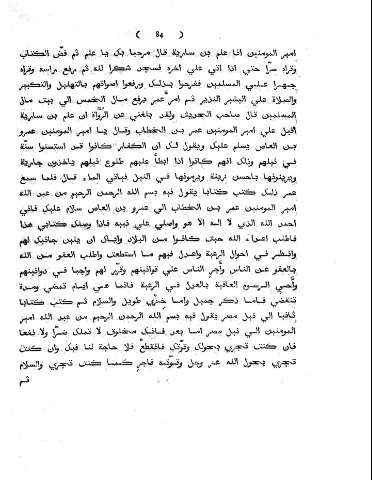 ( 84 )
امير المومنين انا علم بن سارية قال مرحبا بك يا علم ثم فض الكتاب
وقراه سرّا حتي اذا اتي علي اخره فسجد شكرا لله ثم رفع راسه وقراه
جهرا علي المسلمين ففرحوا بذلك ورفعوا اصواتهم بالتهليل والتكبير
والصلاة علي البشير النذير ثم امر عمر برفع مال الخمس الي بيت مال
المسلمين قال صاحب الحديث ولقد بلغني عن الرواة ان علم بن سارية
اقبل علي امير المومنين عمر بن الخطاب وقال يا امير المومنين عمرو
بن العاص يسلم عليك ويقول لك ان الكفار كانوا قد استسنوا سنّة
في نيلهم وذلك انهم كانوا اذا ابطأ عليهم طلوع نيلهم ياخذون جارية
ويزينوها باحسن زينة ويرموها في النيل فياتي الماء قال فلما سمع
عمر ذلك كتب كتابا يقول فيه بسم الله الرحمن الرحيم من عبد الله
امير المومنين عمر بن الخطاب الي عمرو بن العاص سلام عليك فاني
احمد الله الذي لا اله الا هو واصلي علي نبيه فاذا وصلك كتابي هذا
فاطلب اعداء الله حيث كانوا من البلاد واياك ان يلين جانبك لهم
وانظر في احوال الرعية واعدل فيهم ما استطعت واطلب العفو من الله
بالعفو عن الناس واجر الناس علي قوانينهم وقرر لهم واجبا في دوانينهم
واحي الرسوم العافية بالعدل في الرعية فانما هي ايام تمضي ومدة
تنقضي فاما ذكر جميل واما خزي طويل والسلام ثم كتب كتابا
ثانيا الي نيل مصر يقول فيه بسم الله الرحمن الرحيم من عبد الله امير
المومنين الي نيل مصر اما بعد فانك مخلوق لا تملك ضرّا ولا نفعا
فان كنت تجري بحولك وقوتك فانقطع فلا حاجة لنا فيك وان كنت
تجري بحول الله عز وجل وقوته فاجر كما كنت تجري والسلام
ثم